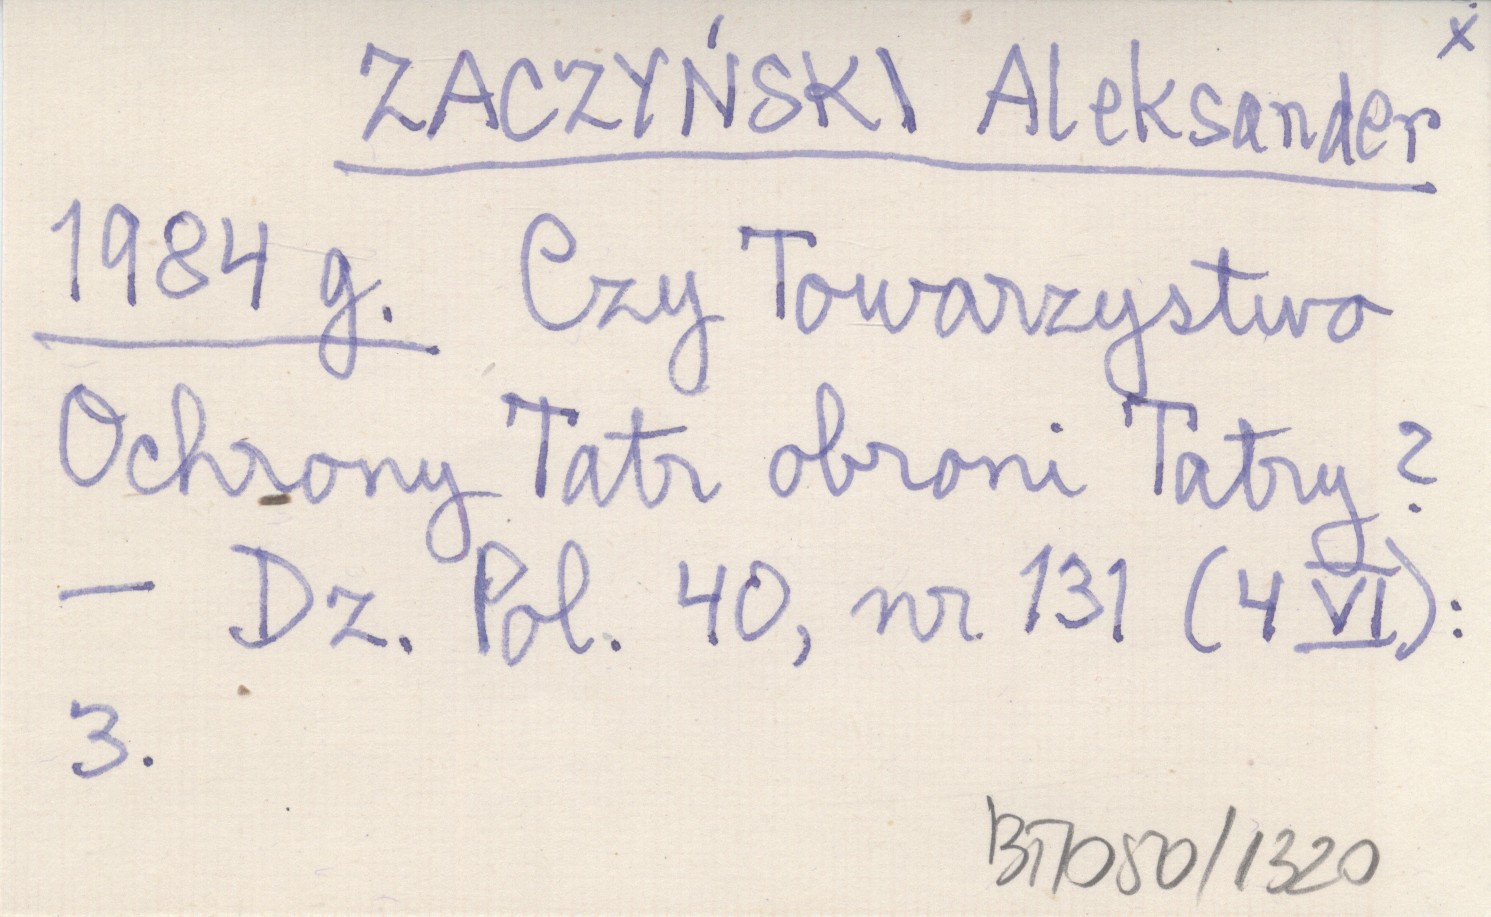 x
ZACZYŃSKI Aleksander
1984 g. Czy Towarzystwo
Ochrony Tatr obroni Tatry?
— Dz. Pol. 40, nr 131 (4 VI):
3.
BT/050/1320